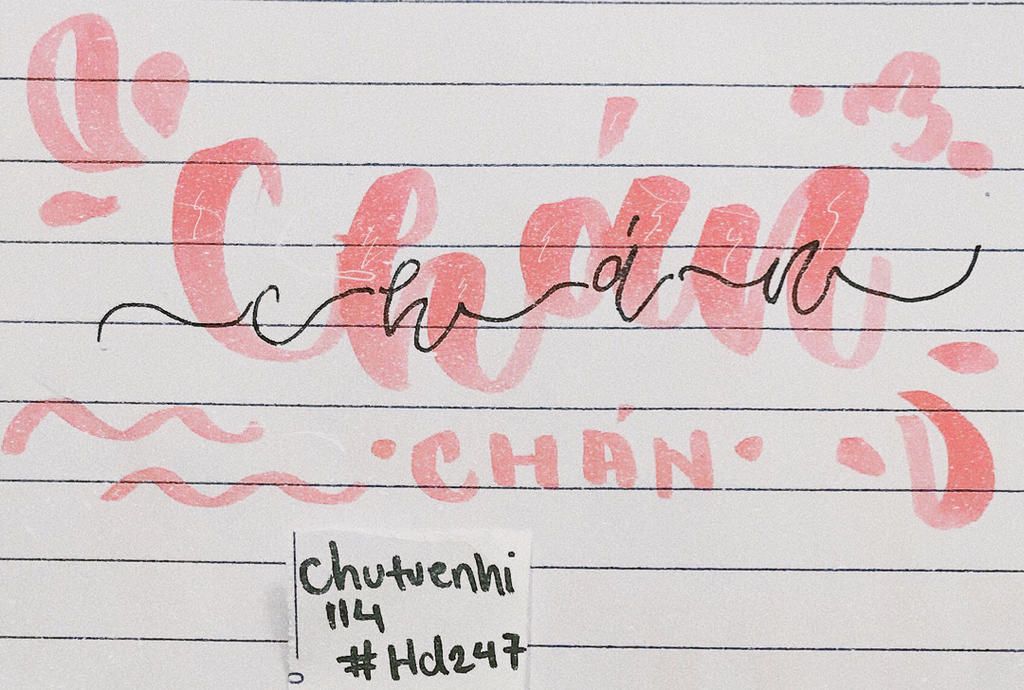 Chán
chán
CHÁN
chutuenhi
114
#Hd247